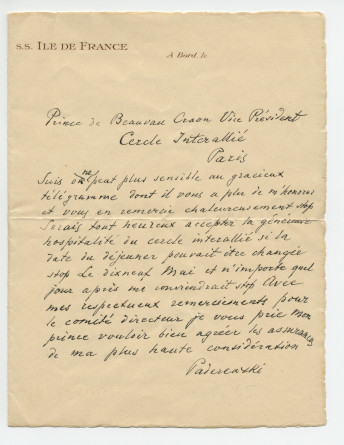 S.S. ILE DE FRANCE
A Bord, le
Prince de Beauvau Craon Vice Président
Cercle Interallié
Paris
Suis on ne peut plus sensible au gracieux
télégramme dont il vous a plu de m'honorer
et vous en remercie chaleureusement stop
Serais tout heureux accepter la généreuse
hospitalité du cercle interallié si la
date du déjeuner pouvait être changée
stop Le dixneuf Mai et n'importe quel
jour après me conviendrait stop Avec
mes respectueux remerciements pour
le comité directeur je vous prie Mon
prince vouloir bien agréer les assurances
de ma plus haute considération
Paderewski